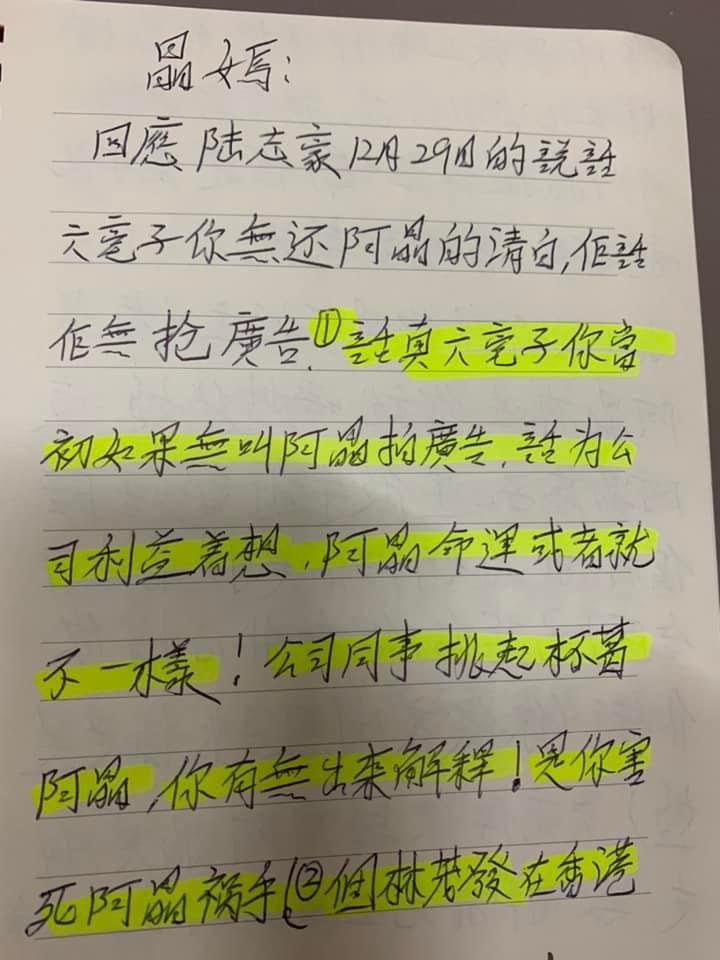 晶媽:
回應陸志豪12月29日的說話
六亳子你無还阿晶的清白,佢話
佢無抢廣告.①話真六亳子你當
初如果無叫阿晶拍廣告,話为公
司利益着想,阿晶命運或者就
不一樣!公司同事挑起杯葛
阿晶,你有無出來解釋!是你害
死阿晶祸手!②個林若發在香港